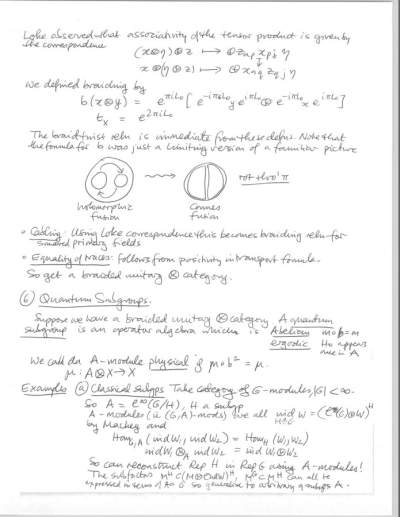 Loke observed that associativity of the tensor product is given by
the correspondence
(x⊗y)⊗z ↦
x⊗(y⊗z) ↦
We defined braiding by
b(x⊗y) = e^{πiL₀}[e^{-πiL₀}y e^{iπL₀} ⊗ e^{-iπL₀} x e^{iπL₀}]
t_x = e^{2πiL₀}
The braid twist reln is immediate from these defns. Note that
the formula for b was just a limiting version of a fourier picture
rot thro' π
holomorphic Connes
fusion fusion
• Coding: Using Loke correspondence this becomes braiding reln for
smeared primary fields
• Equality of traces: follows from positivity in transport formula.
So get a braided unitary ⊗ category.
⑥ Quantum Subgroups.
Suppose we have a braided unitary ⊗ category A quantum
subgroup is an operator algebra which is Abelian m∘b=m
ergodic H₀ appears
once in A
We call an A-module physical if μ∘b² = μ.
μ: A⊗X→X
Examples ⓐ Classical subgps Take category of G-modules, |G|<∞.
So A = ℓ^∞(G/H), H a subgp
A-modules (ie (G,A)-mods) are all ind W = (ℓ^∞(G)⊗W)^H
H↑G
by Mackey and
Hom_{G,A}(ind W₁, ind W₂) = Hom_H(W₁,W₂)
ind W₁ ⊗_A ind W₂ = ind W₁⊗W₂
So can reconstruct Rep H in Rep G using A-modules!
The subfactors M^H ⊂ (M⊗End W)^H, M^G ⊂ M^H can all be
expressed in terms of A & G so generalize to arbitrary q subgps A.